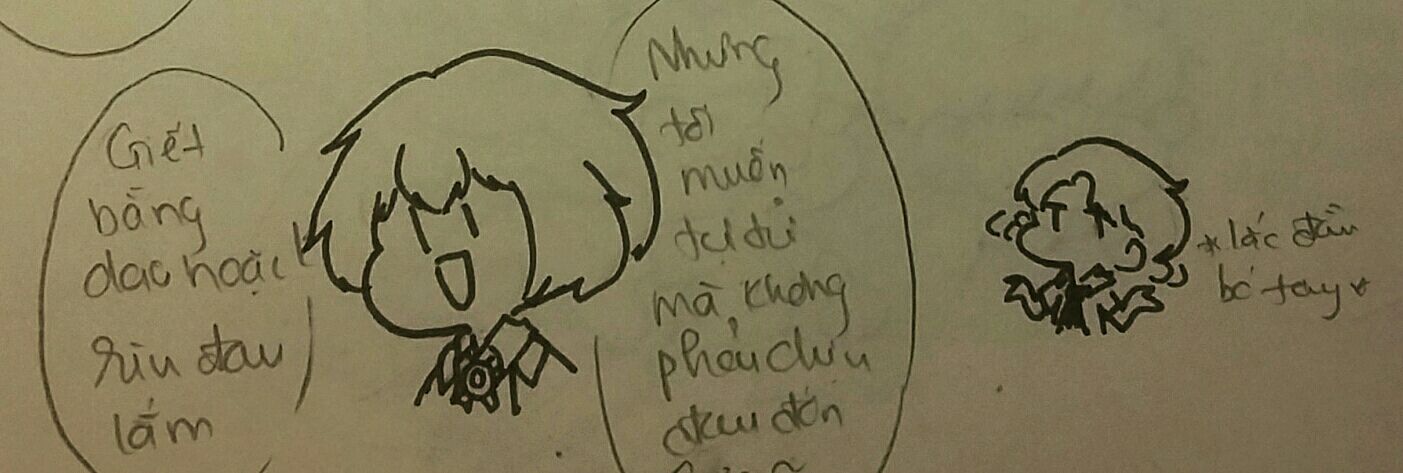 Giết
bằng
dao hoặc
rìu đau
lắm
Nhưng
tôi
muốn
tự tử
mà không
phải chịu
đau đớn
*lắc đầu
bó tay*